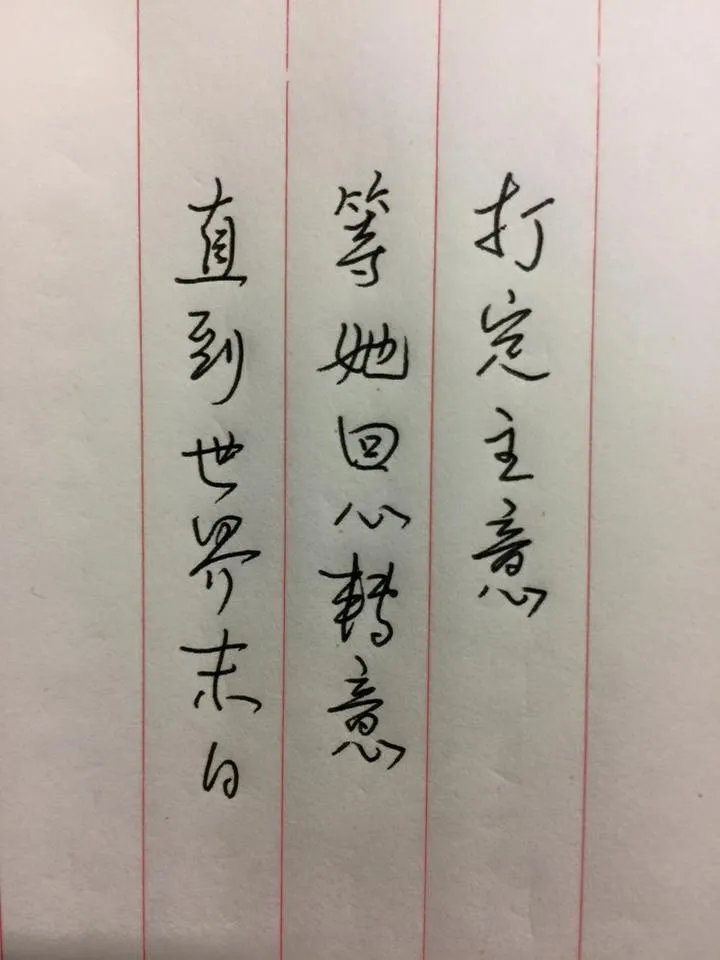 打定主意
等她回心轉意
直到世界末日